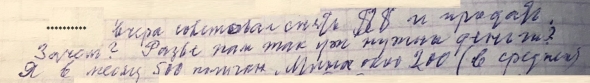 ........... Вчера советовал снять ПВ и продать.
Зачем? Разве нам так уж нужны деньги?
Я в месяц 500 получаю, Минна около 200 (в среднем)